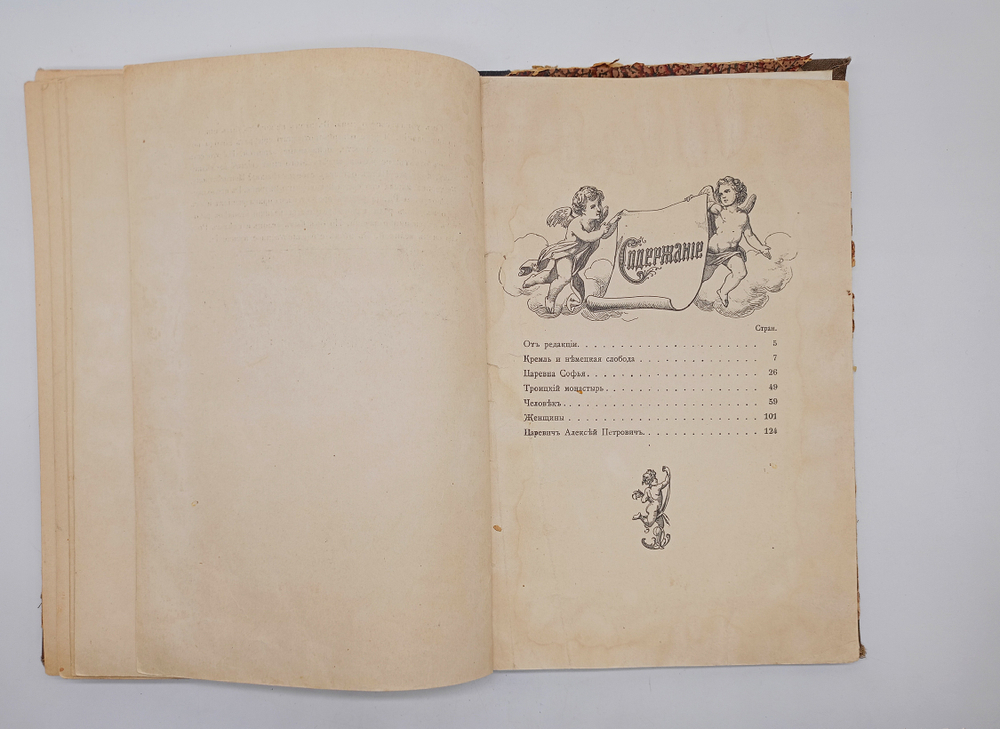 Содержаніе
Стран.
Отъ редакціи. . . . . . . . . . . . . . . . . . . . 5
Кремль и нѣмецкая слобода . . . . . . . . . . . . . 7
Царевна Софья. . . . . . . . . . . . . . . . . . . 26
Троицкій монастырь . . . . . . . . . . . . . . . . 49
Человѣкъ . . . . . . . . . . . . . . . . . . . . . 59
Женщины . . . . . . . . . . . . . . . . . . . . . 101
Царевичъ Алексѣй Петровичъ. . . . . . . . . . . . 124